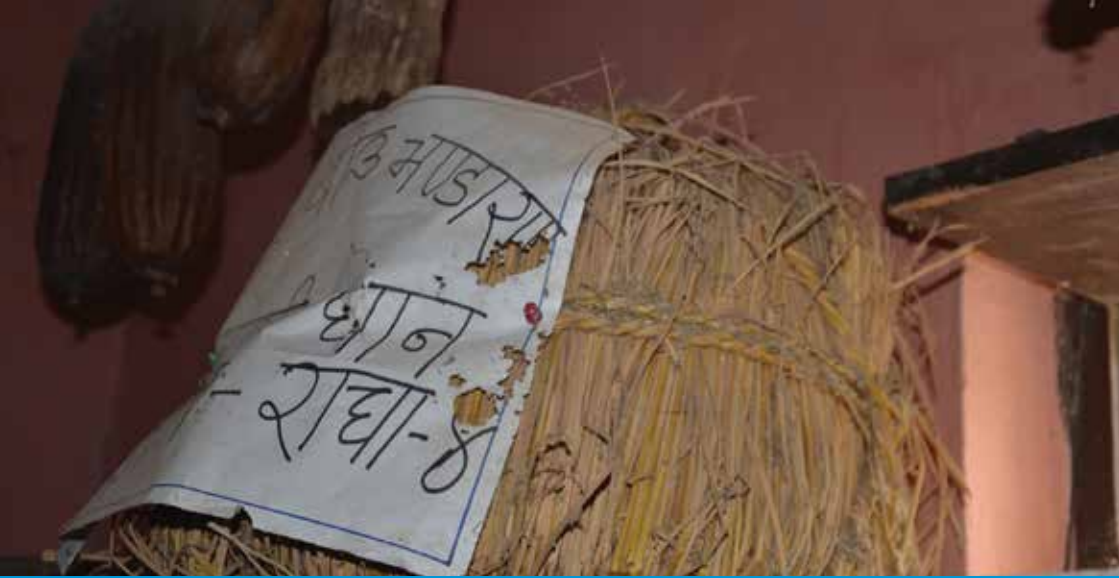 भण्डारण
धान
- राधा-४